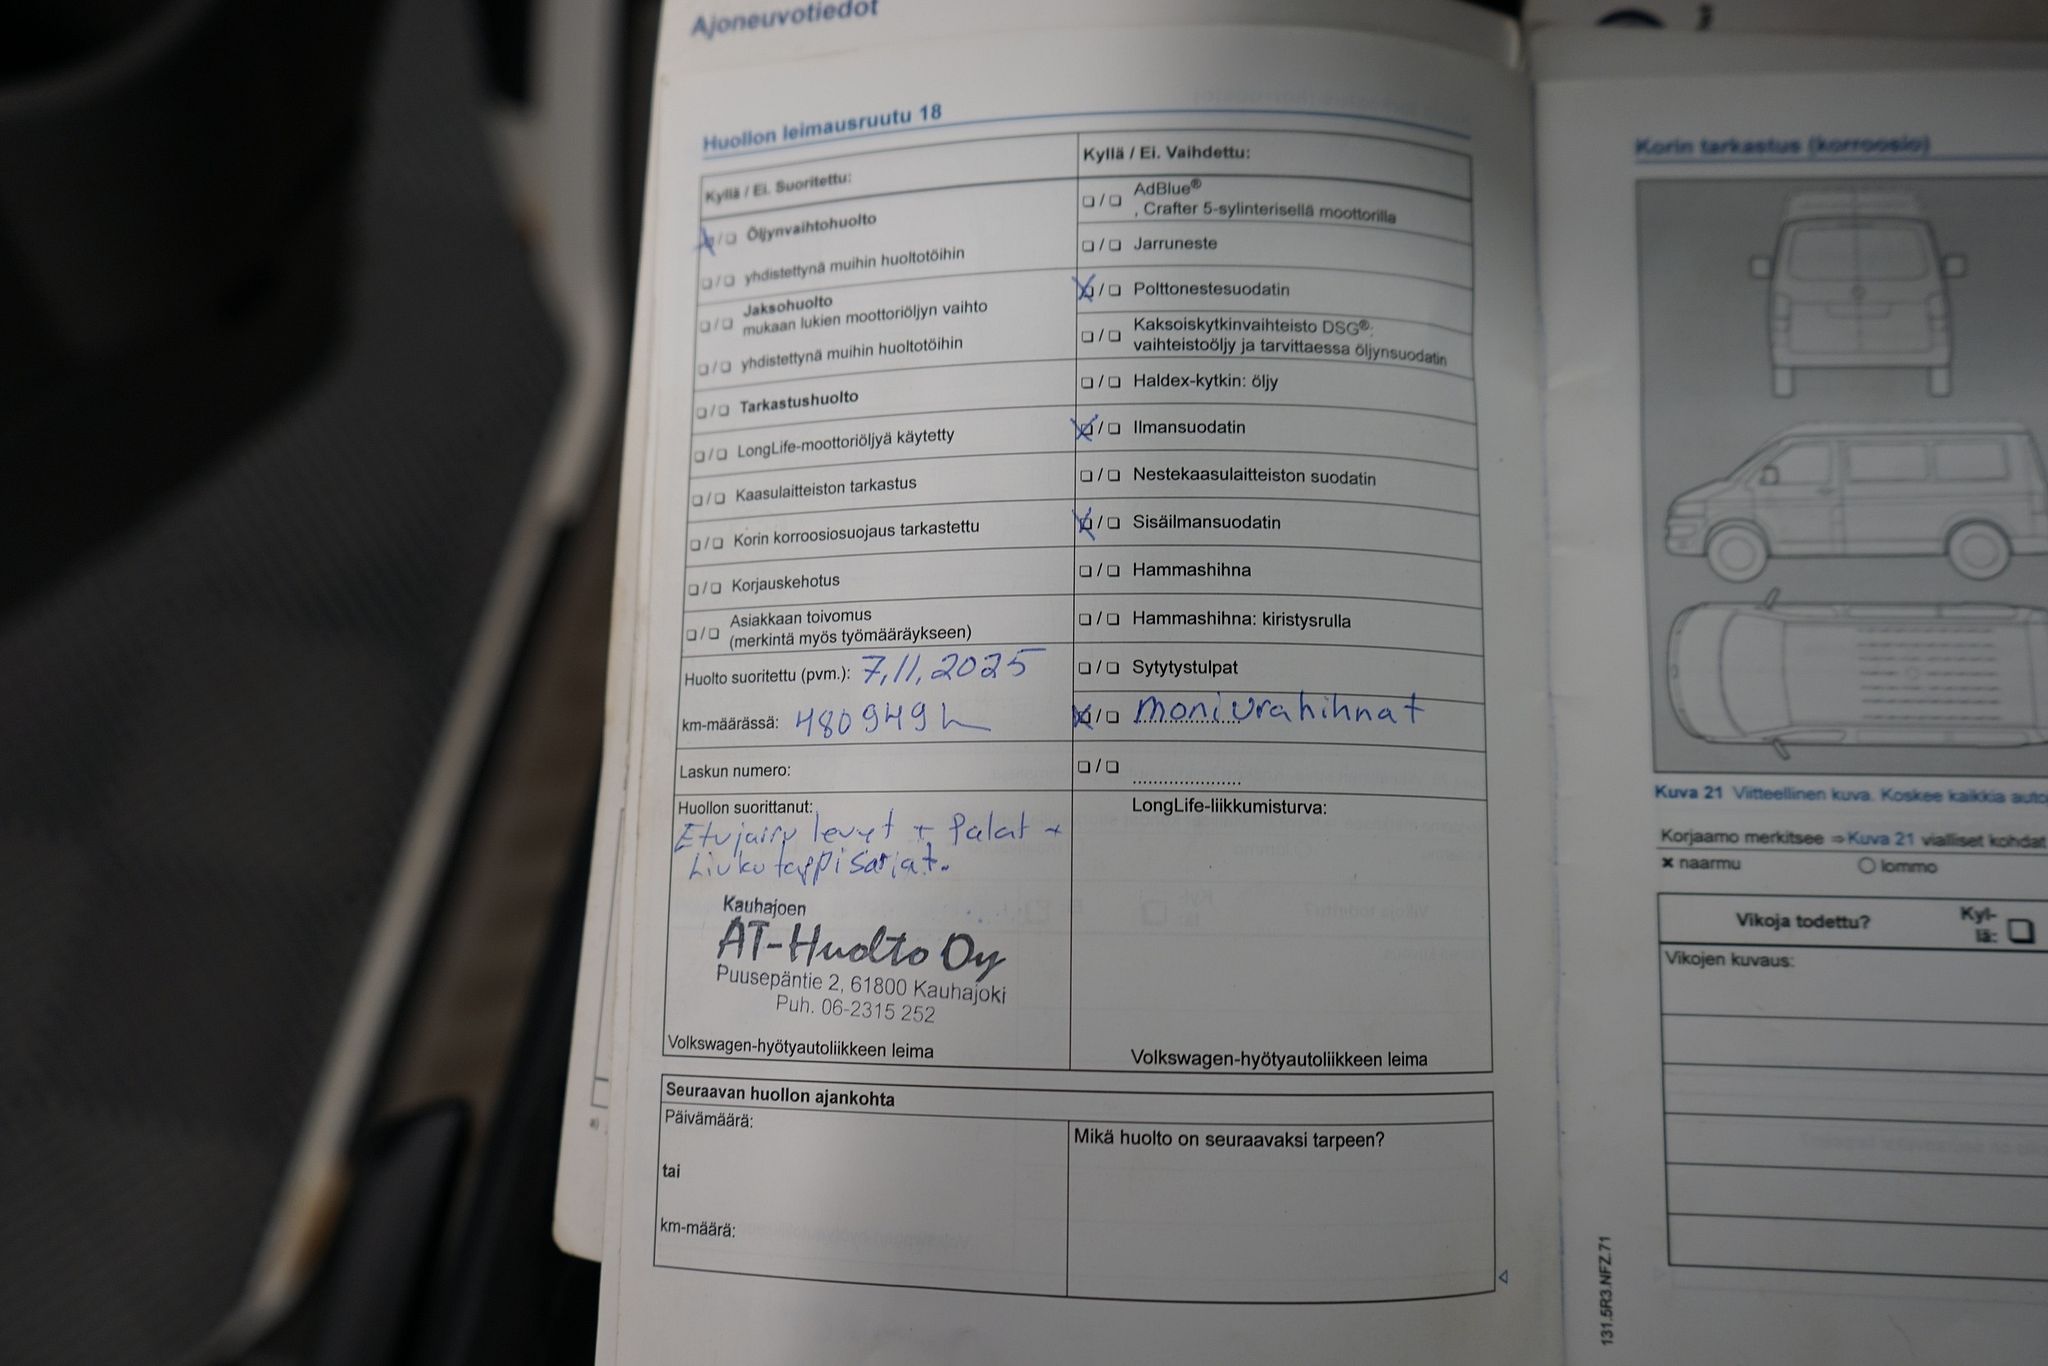 Ajoneuvotiedot
Huollon leimausruutu 18
Kyllä / Ei. Suoritettu:
❏ / ❏ Öljynvaihtohuolto
❏ / ❏ yhdistettynä muihin huoltotöihin
❏ / ❏ Jaksohuolto
mukaan lukien moottoriöljyn vaihto
❏ / ❏ yhdistettynä muihin huoltotöihin
❏ / ❏ Tarkastushuolto
❏ / ❏ LongLife-moottoriöljyä käytetty
❏ / ❏ Kaasulaitteiston tarkastus
❏ / ❏ Korin korroosiosuojaus tarkastettu
❏ / ❏ Korjauskehotus
❏ / ❏ Asiakkaan toivomus
(merkintä myös työmääräykseen)
Huolto suoritettu (pvm.): 7.11.2025
km-määrässä: 480949
Laskun numero:
Huollon suorittanut:
Etujarru levyt + palat +
Liukutappisarjat.
Kauhajoen
AT-Huolto Oy
Puusepäntie 2, 61800 Kauhajoki
Puh. 06-2315 252
Volkswagen-hyötyautoliikkeen leima
Kyllä / Ei. Vaihdettu:
❏ / ❏ AdBlue®
, Crafter 5-sylinterisellä moottorilla
❏ / ❏ Jarruneste
❏ / ❏ Polttonestesuodatin
❏ / ❏ Kaksoiskytkinvaihteisto DSG®:
vaihteistoöljy ja tarvittaessa öljynsuodatin
❏ / ❏ Haldex-kytkin: öljy
❏ / ❏ Ilmansuodatin
❏ / ❏ Nestekaasulaitteiston suodatin
❏ / ❏ Sisäilmansuodatin
❏ / ❏ Hammashihna
❏ / ❏ Hammashihna: kiristysrulla
❏ / ❏ Sytytystulpat
❏ / ❏ moniurahihnat
❏ / ❏ .....................
LongLife-liikkumisturva:
Volkswagen-hyötyautoliikkeen leima
Seuraavan huollon ajankohta
Päivämäärä:
tai
km-määrä:
Mikä huolto on seuraavaksi tarpeen?
Korin tarkastus (korroosio)
Kuva 21 Viitteellinen kuva. Koskee kaikkia
Korjaamo merkitsee ⇒ Kuva 21 vialliset kohdat
× naarmu
○ lommo
Vikoja todettu?
Kyl-
lä: ❏
Vikojen kuvaus:
131.5R3.NFZ.71